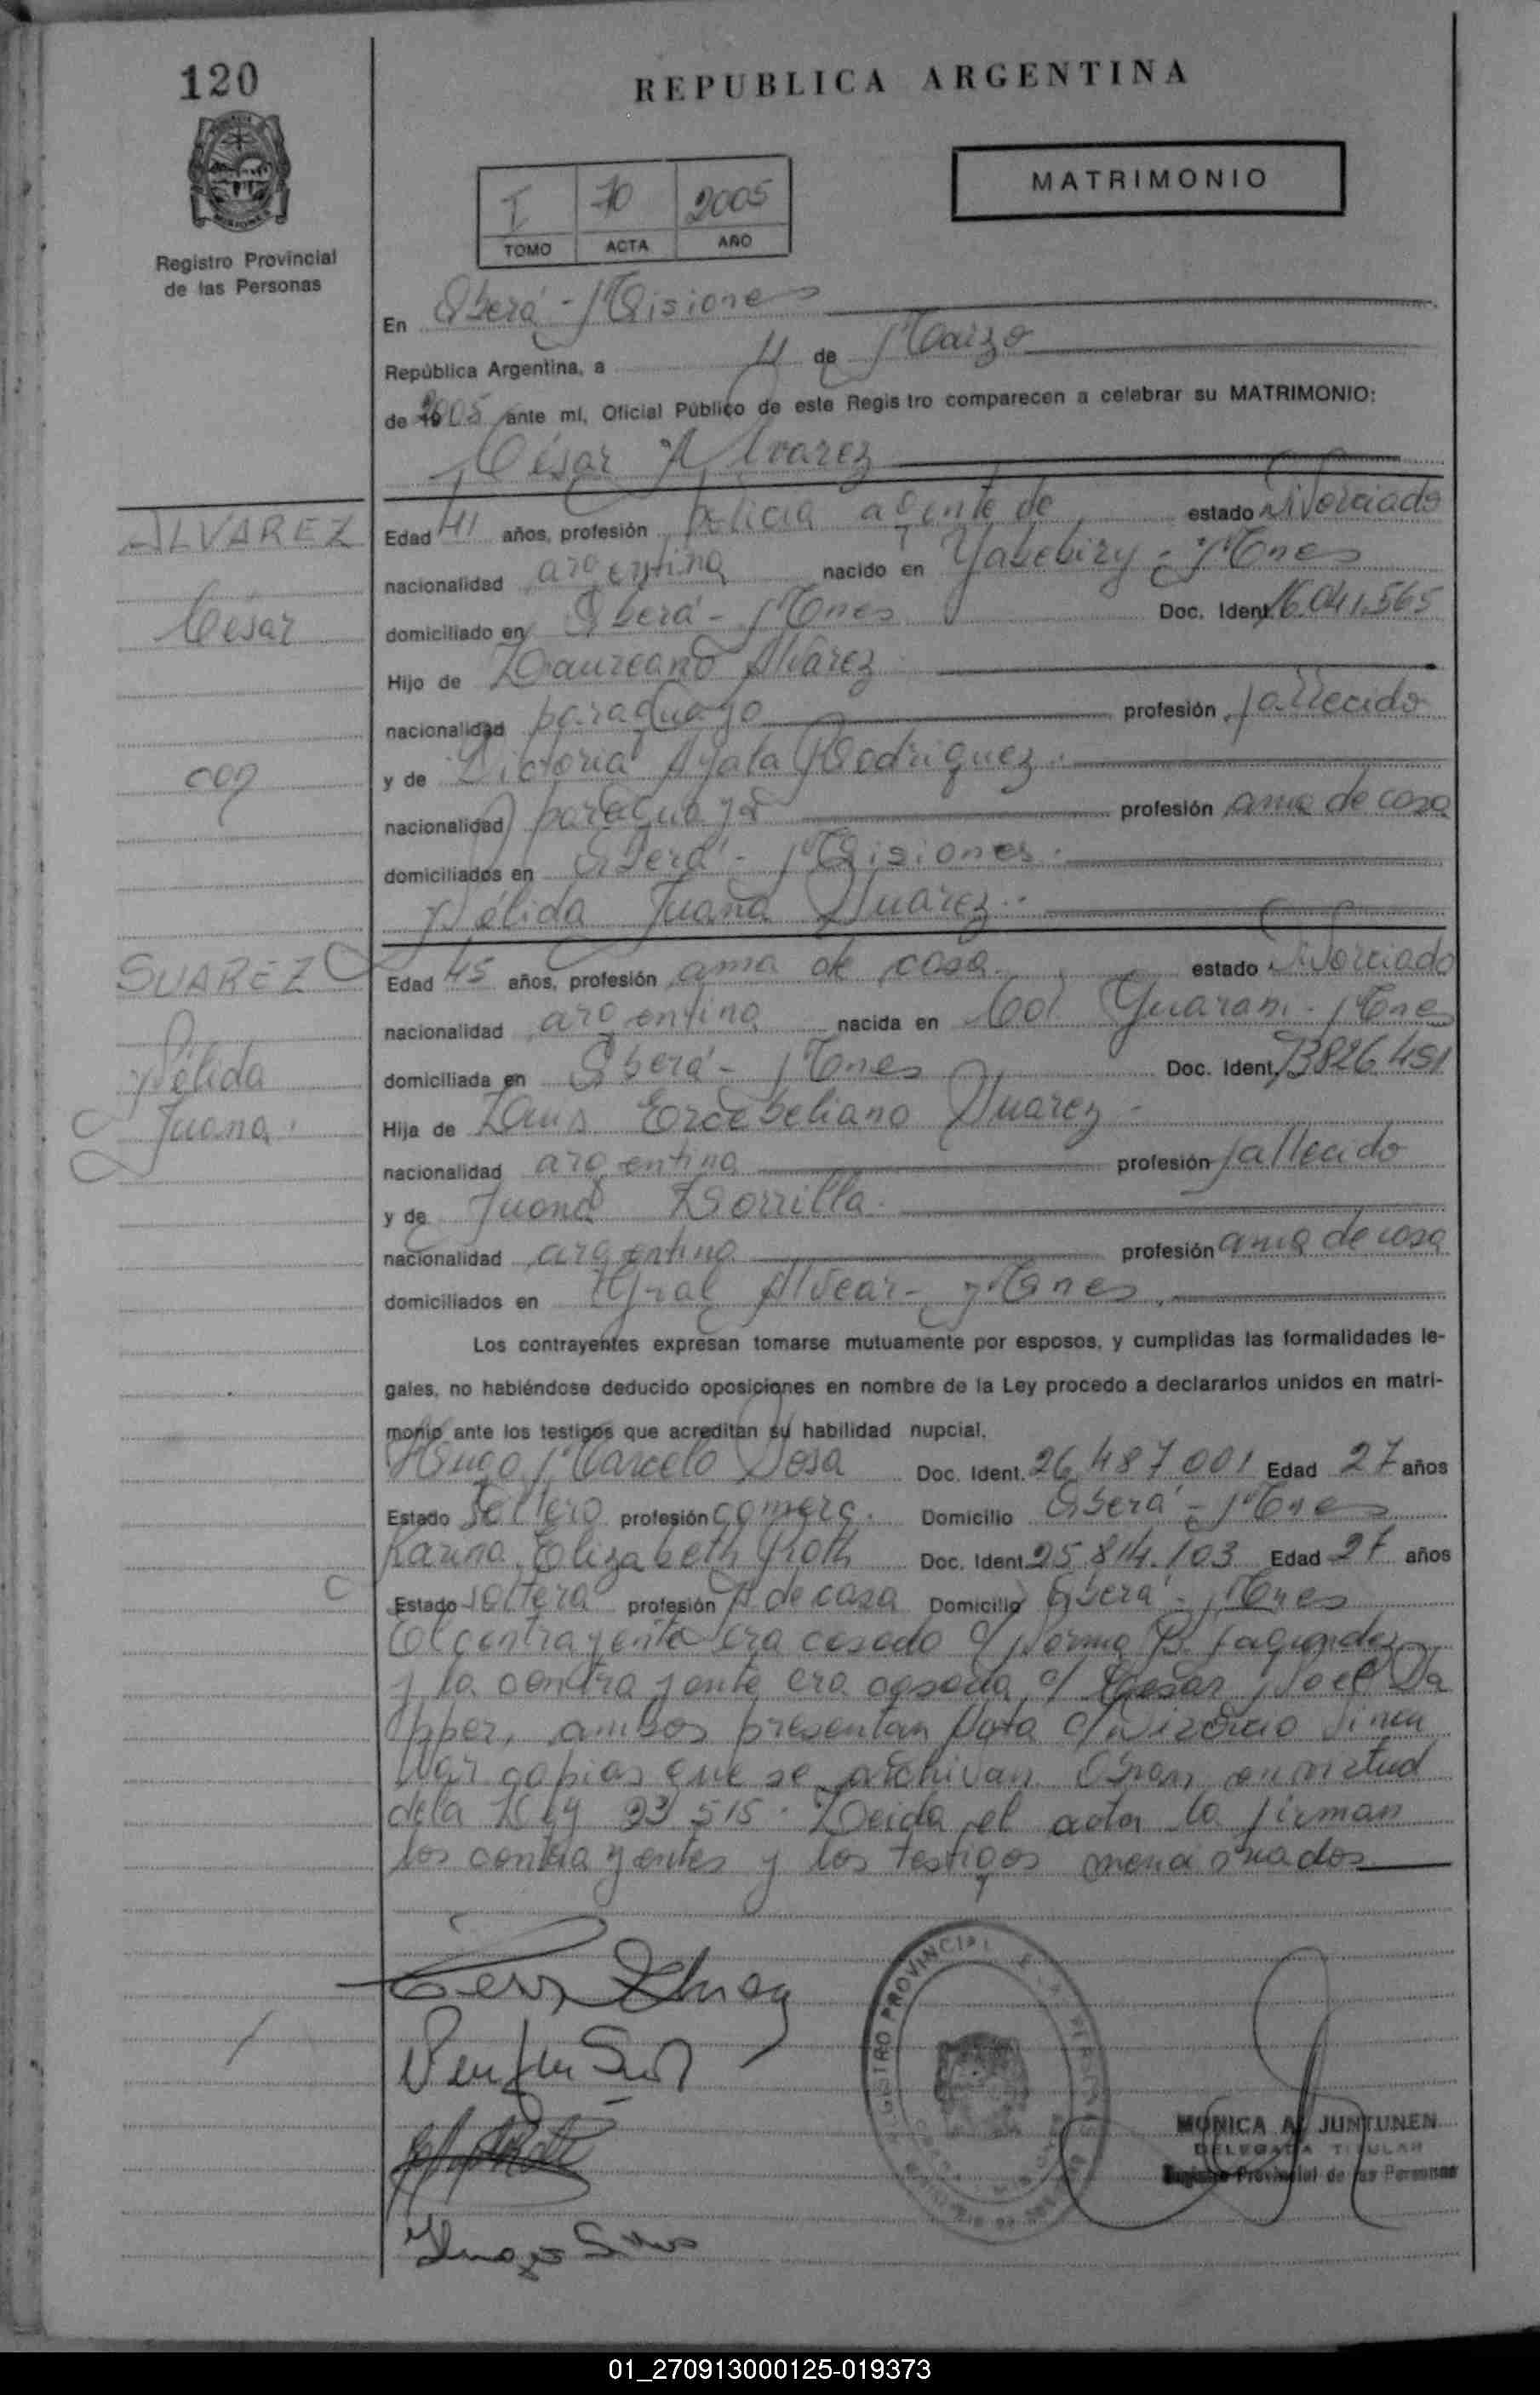 120
REPUBLICA ARGENTINA
MATRIMONIO
I 70 2005
TOMO ACTA AÑO
Registro Provincial
de las Personas
En Oberá - Misiones
República Argentina, a 11 de Marzo
de 2005 ante mí, Oficial Público de este Registro comparecen a celebrar su MATRIMONIO:
César Alvarez
ALVAREZ
César
con
Edad 41 años, profesión policia agente de estado Divorciado
nacionalidad argentina nacido en Yabebiry - Mnes
domiciliado en Oberá - Mnes Doc. Ident. 16.041.565
Hijo de Laureano Alvarez
nacionalidad paraguayo profesión fallecido
y de Victoria Ayala Rodriguez
nacionalidad paraguaya profesión ama de casa
domiciliados en Oberá - Misiones
Nélida Juana Suárez
SUAREZ
Nélida
Juana
Edad 45 años, profesión ama de casa estado Divorciado
nacionalidad argentina nacida en Col Guarani - Mnes
domiciliada en Oberá - Mnes Doc. Ident. 13826.451
Hija de Suarez
nacionalidad argentina profesión fallecido
y de Juana Borrilla
nacionalidad argentina profesión ama de casa
domiciliados en Gral Alvear - Mnes
Los contrayentes expresan tomarse mutuamente por esposos, y cumplidas las formalidades le-
gales, no habiéndose deducido oposiciones en nombre de la Ley procedo a declararlos unidos en matri-
monio ante los testigos que acreditan su habilidad nupcial.
Hugo Marcelo Sosa Doc. Ident. 26.487.001 Edad 27 años
Estado Soltero profesión comerc. Domicilio Oberá - Mnes
Karina Elizabeth Roth Doc. Ident. 25.814.103 Edad 27 años
Estado soltera profesión A de casa Domicilio Oberá - Mnes
El contrayente era casado c/ Norma B. Fagundez
y la contrayente era casada c/ Cesar Noel Da
pper, ambos presentan Sota c/ Divorcio Vincu
lar copias que se archivan Obran en virtud
de la Ley 23 515. Leida el acta la firman
los contrayentes y los testigos mencionados
MONICA A. JUNTUNEN
DELEGADA TITULAR
Registro Provincial de las Personas
01_270913000125-019373